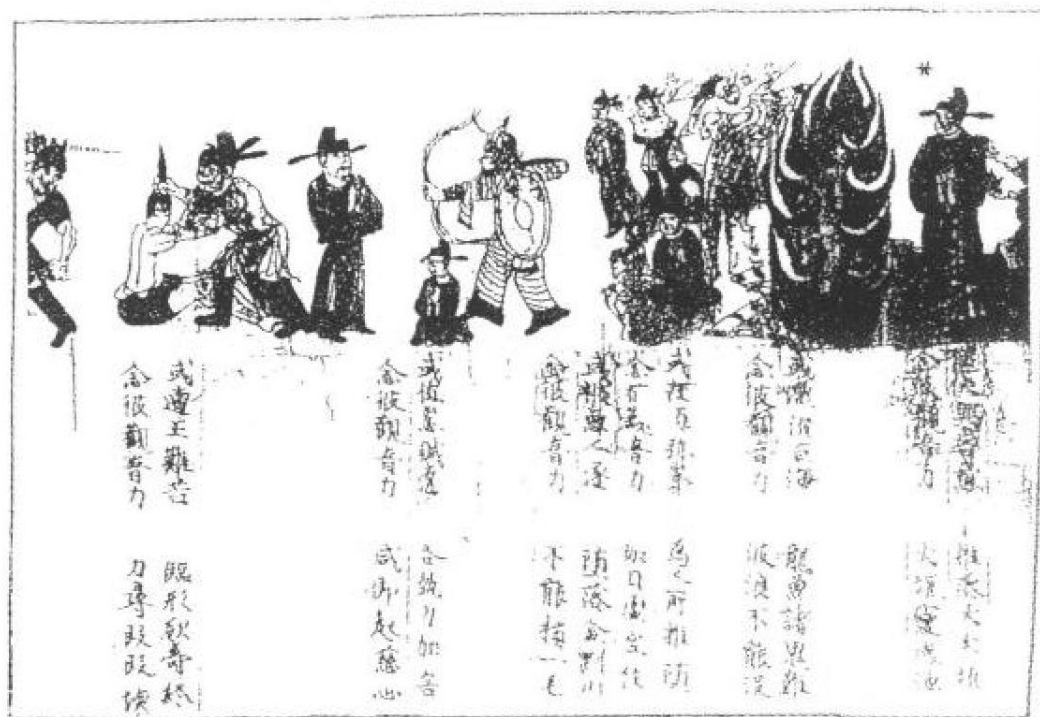 推落大火坑
念彼觀音力 火坑變成池
或漂流巨海 龍魚諸鬼難
念彼觀音力 波浪不能没
或在須弥峯 爲人所推墮
念彼觀音力 如日虛空住
或被惡人逐 墮落金剛山
念彼觀音力 不能損一毛
或值怨賊遶 各執刀加害
念彼觀音力 咸即起慈心
或遭王難苦 臨形欲壽終
念彼觀音力 刀尋段段壞